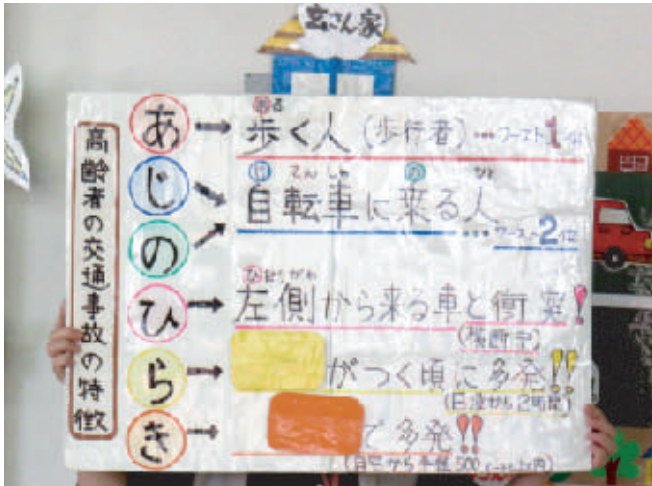 玄さん家
高齢者の交通事故の特徴
あ → 歩く人(歩行者)…ワースト1位
ある
じ
の
じ てん しゃ の ひと
自転車に乗る人
…ワースト2位
ひだりがわ
ひ → 左側から来る車と衝突!
(横断中)
ら → がつく頃に多発!!
(日没から2時間)
き → で多発!!
(自宅から半径500メートル以内)